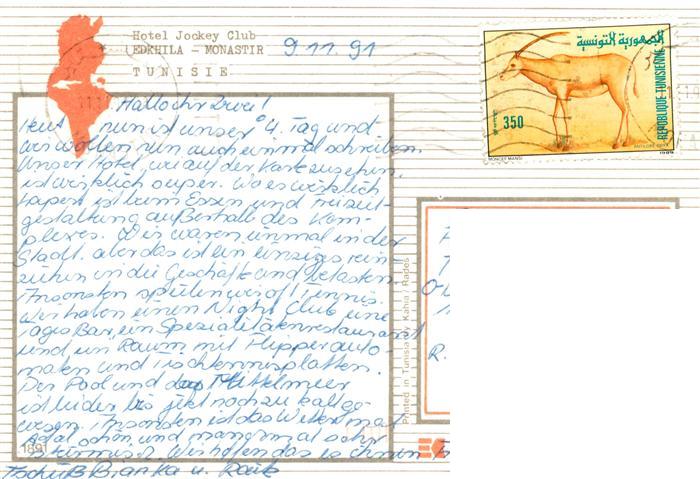 Hotel Jockey Club
EDKHILA - MONASTIR
TUNISIE
9.11.91
الجمهورية التونسية
REPUBLIQUE TUNISIENNE
350
Hallo ihr Zwei!
Heut nun ist unser 4. Tag und
wir wollen nun auch einmal schreiben.
Unser Hotel, wie auf der Karte zu sehen,
ist wirklich super. Wo es wirklich
hapert ist beim Essen und Freizeit-
gestaltung außerhalb des Kom-
plexes. Wir waren einmal in der
Stadt. aber das ist ein einziges rein-
ziehen in die Geschäfte und betasten.
Ansonsten spielen wir oft Tennis.
Wir haben einen Night Club eine
Tages Bar, ein Spezialitätenrestaurant
und ein Raum mit Flipperauto-
maten und Tischtennisplatten.
Der Pool und das Mittelmeer
ist leider bis jetzt noch zu kalt ge-
wesen. Ansonsten ist das Wetter mal
schön und manchmal sehr
stürmisch. Wir hoffen das es ihnen
Tschüß Bianka u.
Printed in Tunisia by Kahia, Rades
1891
R.